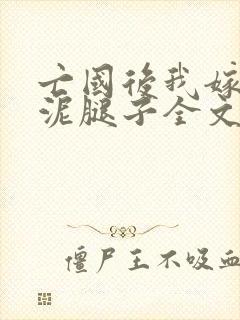 亡國後我嫁
泥腿子全文
僵尸王不吸血